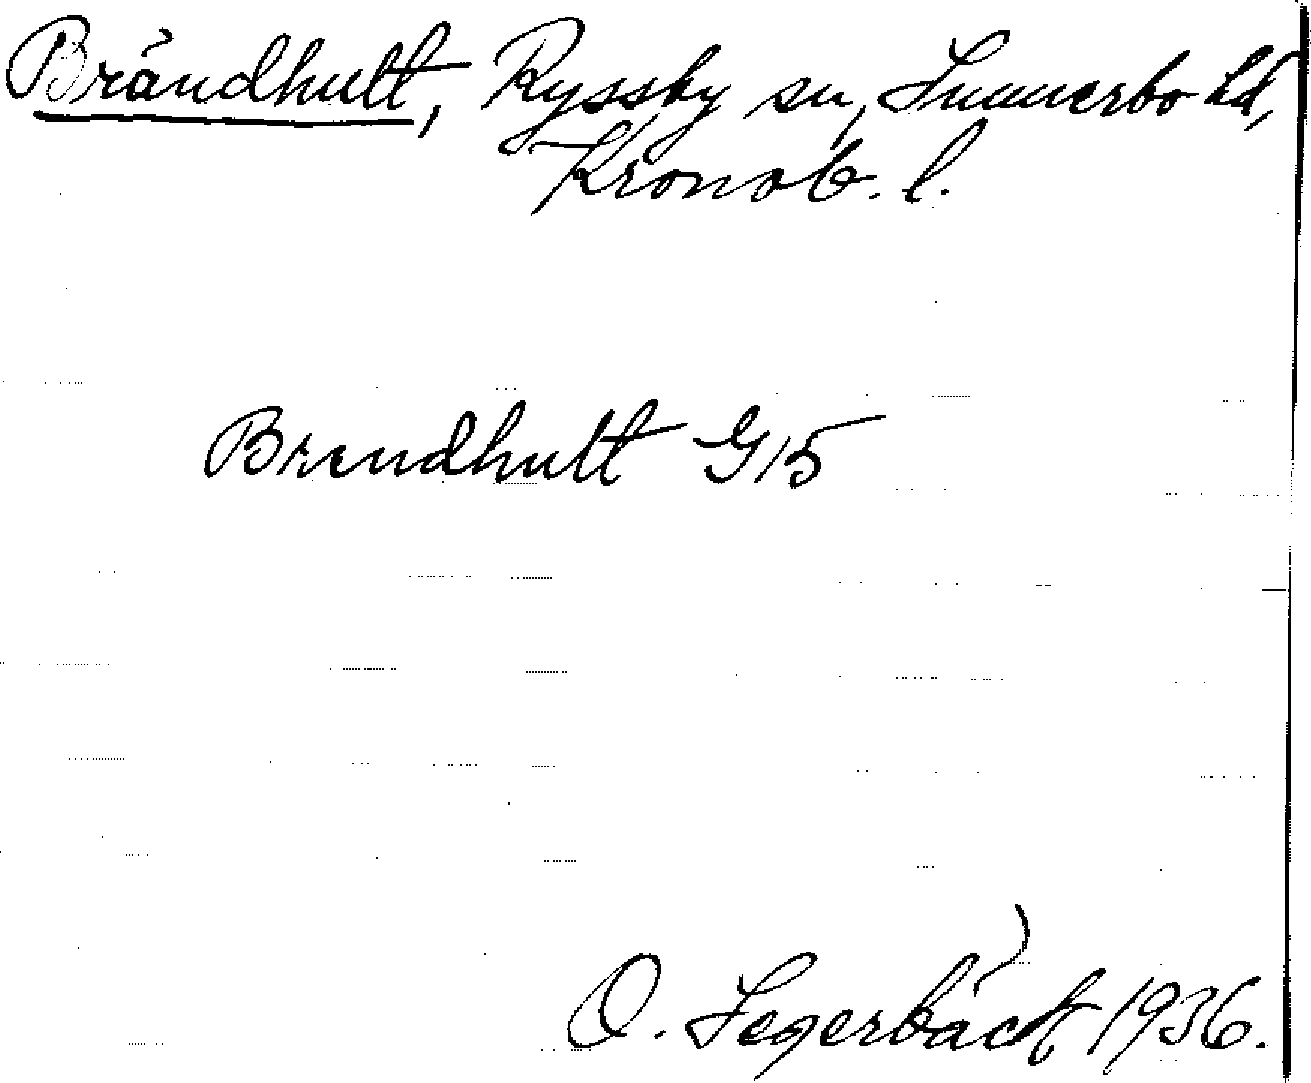 Brändhult, Ryssby sn, Sunnerbo hd,
Kronob. l.
Brendhult G15
O. Segerbäck 1936.